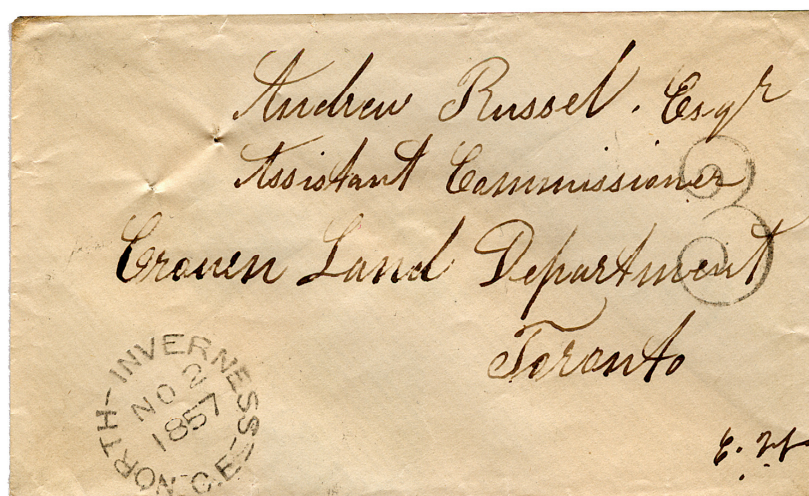 Andrew Russel. Esqr
Assistant Commissioner
3
Crown Land Department
Toronto
NORTH-INVERNESS-C.E
NO 2
1857